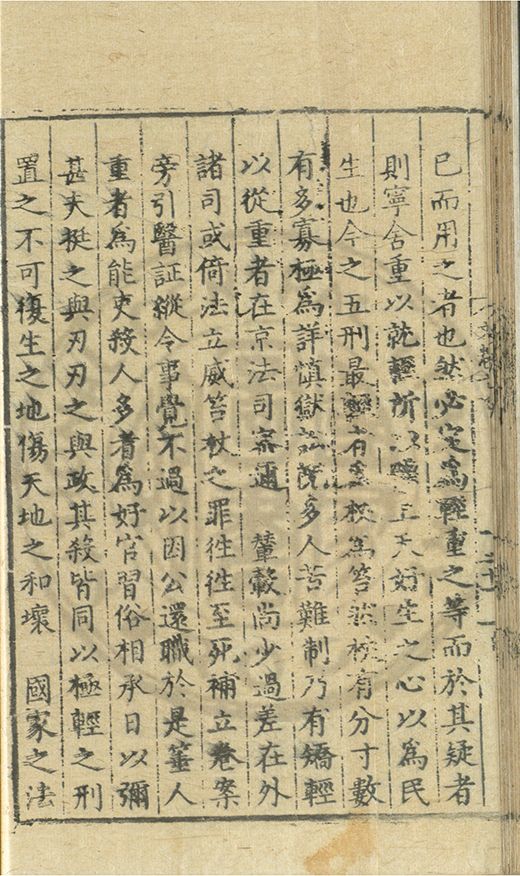 已而用之者也然必定為輕重之等而於其疑者
則寧舍重以就輕所以體上天好生之心以為民
生也今之五刑最輕者為杖為笞然杖有分寸數
有多寡極為詳慎獄訟旣多人苦難制乃有矯輕
以從重者在京法司密邇 輦轂尚少過差在外
諸司或倚法立威笞杖之罪徃徃至死補立卷案
旁引醫証縱令事覺不過以因公還職於是箠人
重者為能吏殺人多者為好官習俗相承日以彌
甚夫梃之與刃刃之與政其殺皆同以極輕之刑
置之不可復生之地傷天地之和壞 國家之法